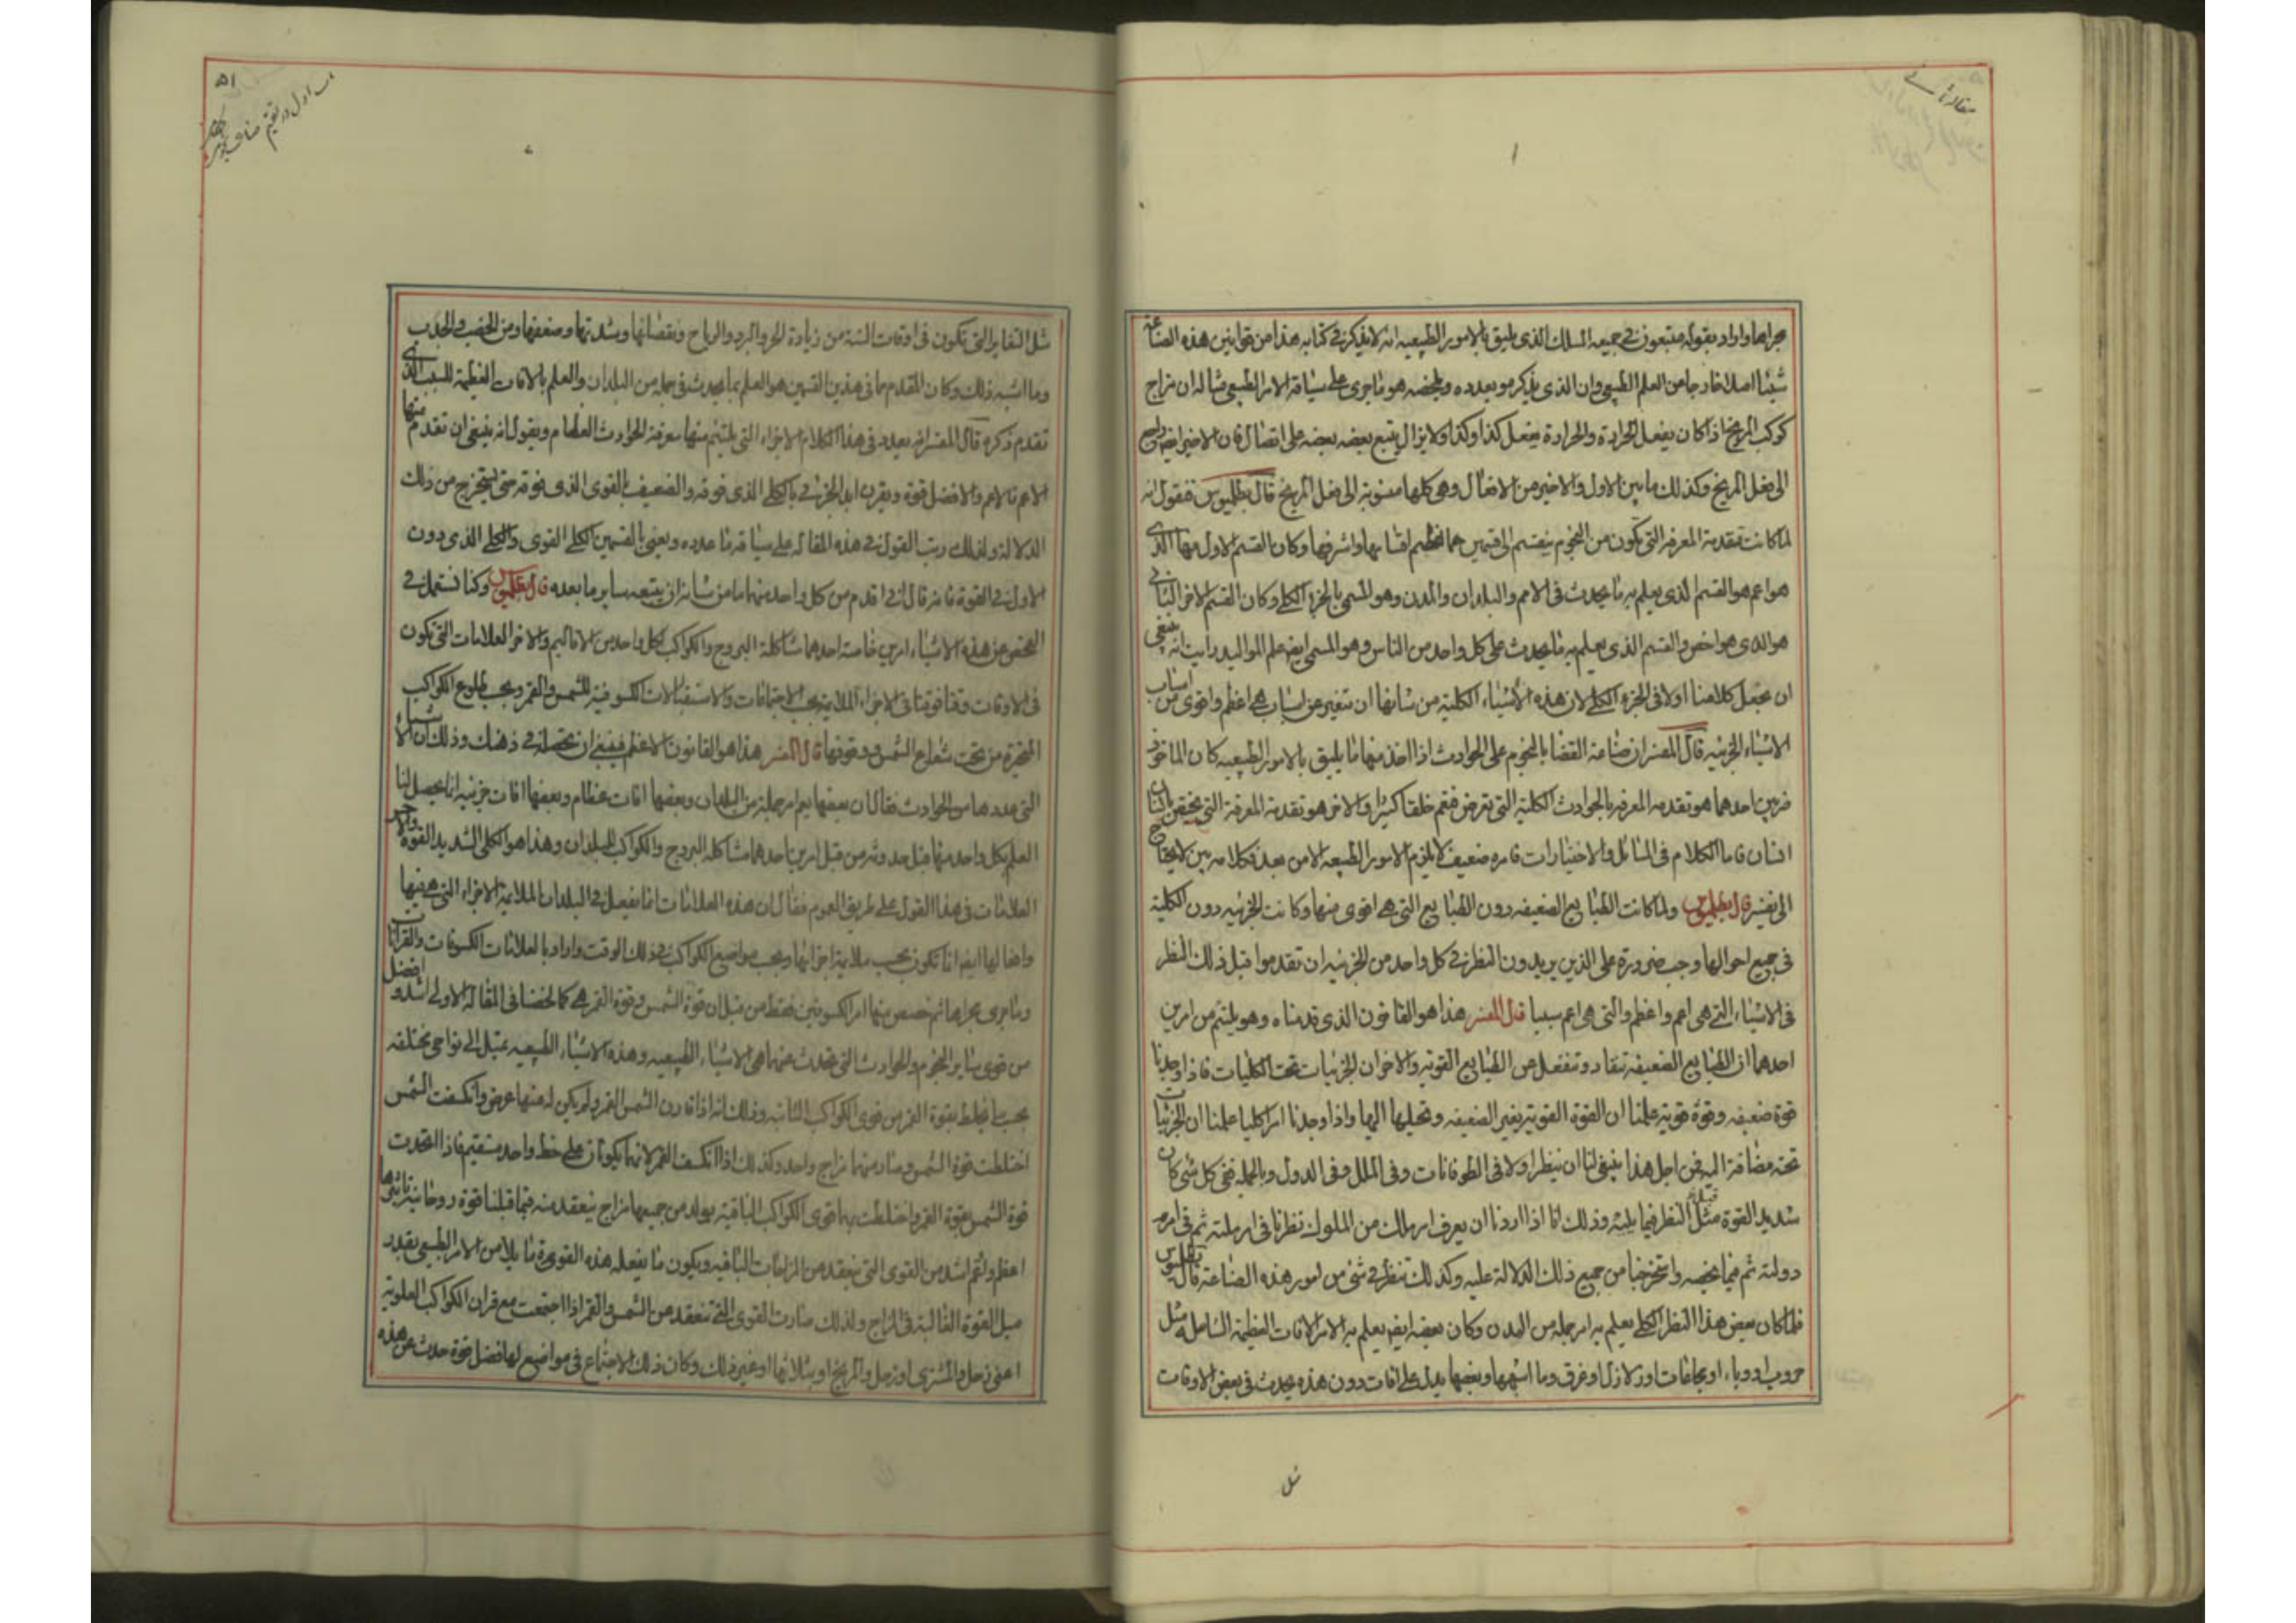 مقالة ثانی
۱
مجراها واراد بقوله متبعون فی جمیعه المسلك الذی یلیق بالامور الطبیعیه انه لا یذکر فی کتابه هذا من قوانین هذه الصناعة
شیئا اصلا خارجا من العلم الطبیعی وان الذی یذکر مو یعدده ویلخصه هو ما جری علی سیاقة الامر الطبیعی مثاله ان مزاج
کوکب المریخ اذا کان یفعل الحرارة والحرارة یفعل کذا وکذا ولا یزال یتبع بعضه بعضه علی اتصال فان الاخیر ایضا راجع
الی فعل المریخ وکذلك ما بین الاول والاخیر من الافعال وهی کلها منسوبة الی فعل المریخ قال بطلمیوس فنقول انه
لما کانت تقدمة المعرفه التی تکون من النجوم ینقسم الی قسمین هما اعظم اقسامها واشرفها وکان القسم الاول منها الذی
هو اعم هو القسم الذی یعلم به ما یحدث فی الامم والبلدان والمدن وهو المسمی بالجزء الکلی وکان القسم الاخر الثانی
هو الذی هو اخص والقسم الذی یعلم به ما یحدث علی کل واحد من الناس وهو المسمی ایضا علم الموالید رایت انه ینبغی
ان نجعل کلامنا اولا فی الجزء الکلی لان هذه الاشیاء الکلیة من شانها ان تتغیر عن اسباب هی اعظم واقوی من اسباب
الاشیاء الجزئیه قال المفسر ان صناعة القضا بالنجوم علی الحوادث اذا اخذ منها ما یلیق بالامور الطبیعیه کان الماخوذ
ضربین احدهما هو تقدمه المعرفه بالحوادث الکلیة التی تعرض فتعم خلقا کثیرا والاخر هو تقدمة المعرفة التی یختص بانسان
انسان فاما الکلام فی المسائل والاختیارات فامره ضعیف لا یلزم الامور الطبیعه الا من بعد فکلامه بین لا یحتاج
الی تفسیر قال بطلمیوس ولما کانت الطبایع الضعیفه دون الطبایع التی هی اقوی منها وکانت الجزئیه دون الکلیة
فی جمیع احوالها وجب ضرورة علی الذین یریدون النظر فی کل واحد من الجزئیه ان تقدموا قبل ذلك النظر
فی الاشیاء التی هی اعم واعظم والتی هی اعم سببا قال المفسر هذا هو القانون الذی قدمناه وهو یلتئم من امرین
احدهما ان الطبایع الضعیفة تنقاد وتنفعل عن الطبایع القویه والاخر ان الجزئیات تحت الکلیات فاذا وجدنا
قوة ضعیفه وقوة قویة علمنا ان القوة القویة یغیر الضعیفه وتحیلها الیها واذا وجدنا امرا کلیا علمنا ان الجزئیات
تحته مضافة الیه فمن اجل هذا ینبغی لنا ان ننظر اولا فی الطوفانات وفی الملل وفی الدول وبالجمله فی کل شی کان
شدید القوة مثل النظر فیما یلیه وذلك انا اذا اردنا ان یعرف امر ملك من الملوك نظرنا فی امر ملته ثم فی امر
دولته ثم فیما یخصه واستخرجنا من جمیع ذلك الدلالة علیه وکذلك ننظر فی شی من امور هذه الصناعة قال بطلمیوس
فلما کان بعض هذا النظر الکلی یعلم به امر جمله من المدن وکان بعضه ایضا یعلم به الامر الافات العظیمة الشاملة مثل
حروب او وباء او مجاعات او زلازل او غرق وما اشبهها وبعضها یدل علی افات دون هذه یحدث فی بعض الاوقات
مثل
۵۱
باب اول در تقسیم
مثل التغایر التی یکون فی اوقات السنة من زیادة الحر والبرد والریاح ونقصانها وشدتها وضعفها ومن الخصب والجدب
وما اشبه ذلك وکان المقدم ما فی هذین القسمین هو العلم بما یحدث فی جمله من البلدان والعلم بالافات العظیمة للسبب الذی
تقدم ذکره قال المفسر انه یعدد فی هذا الکلام الاجزاء التی یلتئم منها معرفة الحوادث العظام ویقول انه ینبغی ان تقدم منها
الاعم فالاعم والافضل قوة ویقرن ابدا الجزئی بالکلی الذی فوقه والضعیف بالقوی الذی فوقه حتی یستخرج من ذلك
الدلالة ولذلك رتب القول فی هذه المقاله علی سیاقة ما عدده ویعنی بالقسمین الکلی القوی والکلی الذی دون
الاول فی القوة فانه قال انی اقدم من کل واحد منهما ما من شانه ان یتبعه سایر ما بعده قال بطلمیوس وکنا نستعمل فی
الفحص عن هذه الاشیاء امرین خاصة احدهما مشاکلة البروج والکواکب لکل واحد من الاقالیم والاخر العلامات التی تکون
فی الاوقات وقتا فوقتا فی الاجزاء الملایمة بحسب الاجتماعات والاستقبالات الکسوفیة للشمس والقمر وبحسب طلوع الکواکب
المتحیرة من تحت شعاع الشمس ووقوفها قال المفسر هذا هو القانون الاعظم فینبغی ان یحصله فی ذهنك وذلك ان الاشیاء
التی عددها من الحوادث فقال ان بعضها یعم امر جملة من البلدان وبعضها افات عظام وبعضها افات جزئیه انما یحصل لنا
العلم بکل واحد منها قبل حدوثه من قبل امرین احدهما مشاکله البروج والکواکب للبلدان وهذا هو الکلی الشدید القوة والاخر
العلامات فی هذا القول علی طریق العموم فقال ان هذه العلامات انما یفعل فی البلدان الملایمة الاجزاء التی هی فیها
وافعالها ایضا انما تکون بحسب ملایمة اجزائها وبحسب مواضع الکواکب فی ذلك الوقت واراد بالعلامات الکسوفات والقرانات
وما جری مجراها ثم خصص منها امر الکسوفین فقط من قبل ان قوة الشمس وقوة القمر هی کما لخصنا فی المقالة الاولی اشد وافضل
من قوی سایر النجوم والحوادث التی یحدث عنهما هی الاشیاء الطبیعیه وهذه الاشیاء الطبیعیه تمیل الی نواحی مختلفه
بحسب ما یختلط بقوة القمر من قوی الکواکب الثابته وذلك انه اذا قارن الشمس القمر ولم یکن له عنها عرض وانکسفت الشمس
اختلطت قوة الشمس وصار منهما مزاج واحد وکذلك اذا انکسف القمر لانهما یکونان علی خط واحد مستقیم فاذا اتحدت
قوة الشمس بقوة القمر واختلطت بهما قوی الکواکب الباقیة یولد من جمیعها مزاج ینعقد منه فیما قبلنا قوة روحانیة تاثیرها
اعظم واتم اشد من القوی التی ینعقد من المزاجات الباقیه ویکون ما یفعله هذه القوی مما یلا من الامر الطبیعی بقدر
میل القوة الغالبة فی المزاج ولذلك صارت القوی التی تنعقد من الشمس والقمر اذا اجتمعت مع قران الکواکب العلویة
اعنی زحل والمشتری او زحل والمریخ او بثلاثها او غیر ذلك وکان ذلك الاجتماع فی مواضع لها فضل قوة حدث عن هذه